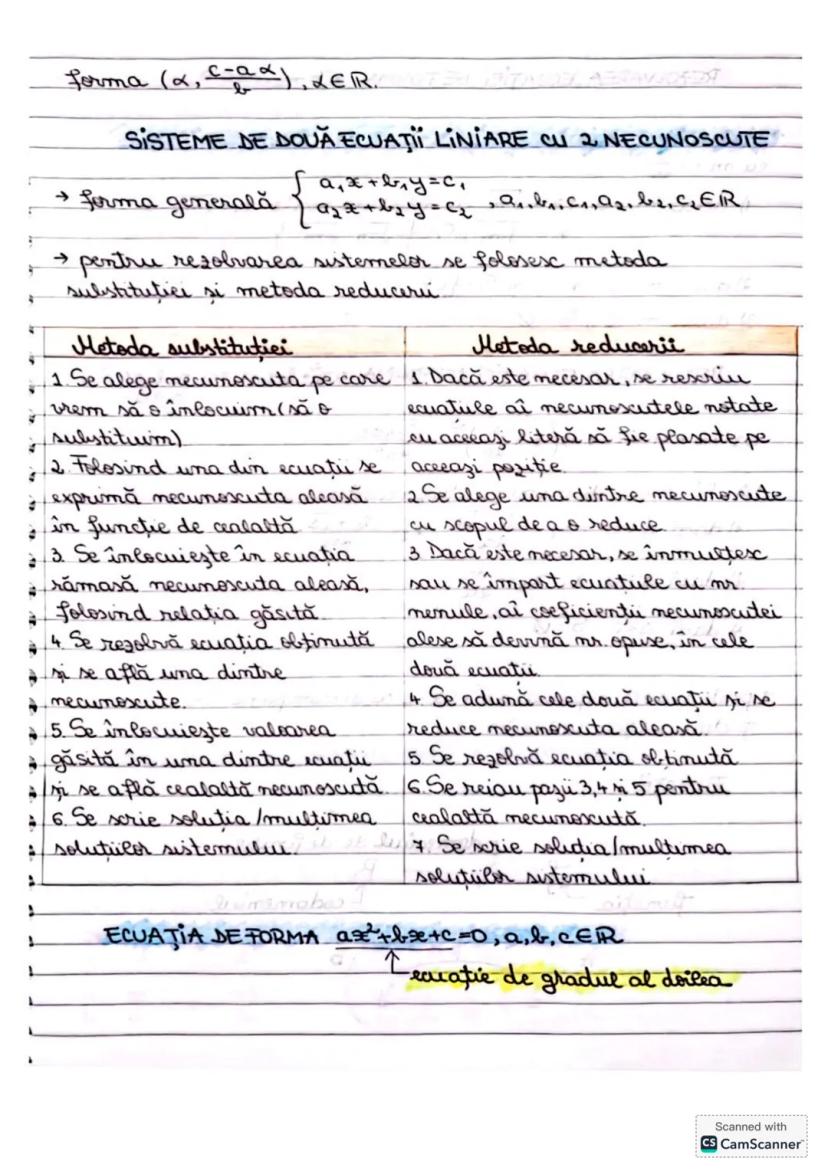 forma (α, \frac{c-aα}{b}), α∈ℝ.
SISTEME DE DOUĂ ECUAȚII LINIARE CU 2 NECUNOSCUTE
→ forma generală { a₁x+b₁y=c₁
a₂x+b₂y=c₂ , a₁,b₁,c₁,a₂,b₂,c₂∈ℝ
→ pentru rezolvarea sistemelor se folosesc metoda
substituției și metoda reducerii
Metoda substituției
1. Se alege necunoscuta pe care
vrem să o înlocuim (să o
substituim)
2. Folosind una din ecuații se
exprimă necunoscuta aleasă
în funcție de cealaltă
3. Se înlocuiește în ecuația
rămasă necunoscuta aleasă,
folosind relația găsită.
4. Se rezolvă ecuația obținută
și se află una dintre
necunoscute.
5. Se înlocuiește valoarea
găsită în una dintre ecuații
și se află cealaltă necunoscută.
6. Se scrie soluția/mulțimea
soluțiilor sistemului.
Metoda reducerii
1. Dacă este necesar, se rescriu
ecuațiile aî necunoscutele notate
cu aceeași literă să fie plasate pe
aceeași poziție.
2. Se alege una dintre necunoscute
cu scopul de a o reduce
3 Dacă este necesar, se înmulțesc
sau se împart ecuațiile cu nr.
nenule, aî coeficienții necunoscutei
alese să devină nr. opuse, în cele
două ecuații.
4. Se adună cele două ecuații și se
reduce necunoscuta aleasă.
5. Se rezolvă ecuația obținută
6. Se reiau pașii 3,4 și 5 pentru
cealaltă necunoscută.
7. Se scrie soluția/mulțimea
soluțiilor sistemului
ECUAȚIA DE FORMA ax²+bx+c=0, a,b,c∈ℝ
ecuație de gradul al doilea
Scanned with
CS CamScanner